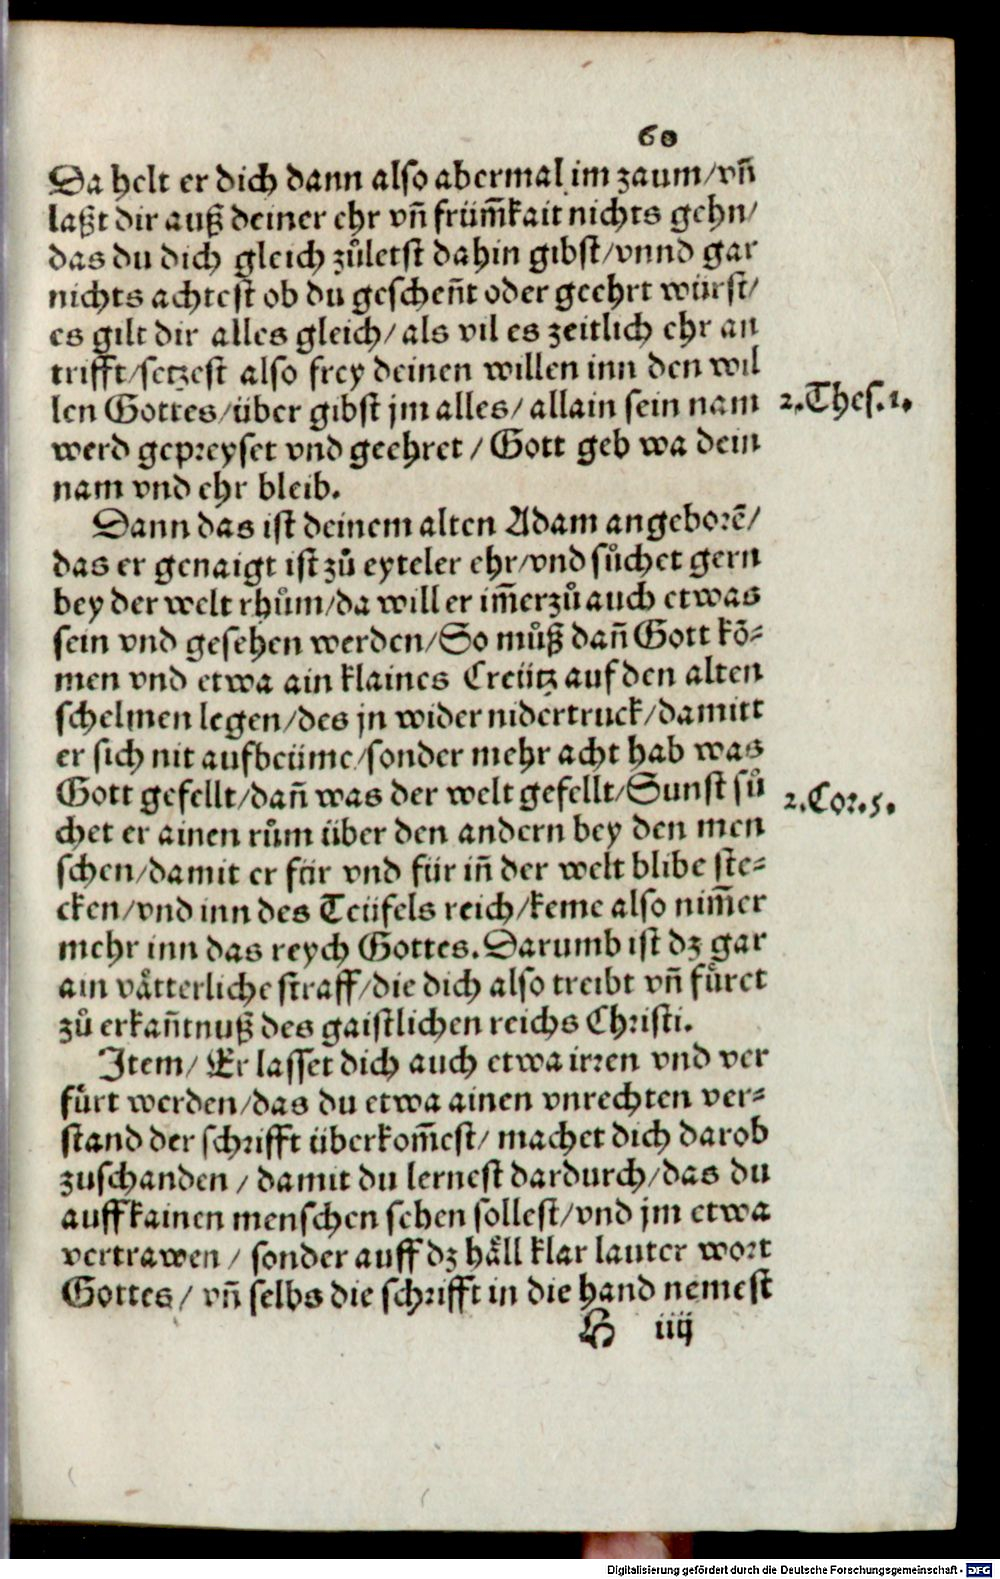 60
Da helt er dich dann also abermal im zaum/vñ
laßt dir auß deiner ehr vñ früm̃kait nichts gehn/
das du dich gleich zůletst dahin gibst/vnnd gar
nichts achtest ob du gescheñt oder geehrt würst/
es gilt dir alles gleich/als vil es zeitlich ehr an
trifft/setzest also frey deinen willen inn den wil
len Gottes/über gibst jm alles/allain sein nam
2.Thes.1.
werd gepreyset vnd geehret/Gott geb wa dein
nam vnd ehr bleib.
Dann das ist deinem alten Adam angeborẽ/
das er genaigt ist zů eyteler ehr/vnd sůchet gern
bey der welt rhům/da will er im̃erzů auch etwas
sein vnd gesehen werden/So můß dañ Gott kõ=
men vnd etwa ain klaines Creütz auf den alten
schelmen legen/des jn wider nidertruck/damitt
er sich nit aufbeüme/sonder mehr acht hab was
Gott gefellt/dañ was der welt gefellt/Sunst sů
2.Cor.5.
chet er ainen rům über den andern bey den men
schen/damit er für vnd für iñ der welt blibe ste=
cken/vnd inn des Teüfels reich/keme also nim̃er
mehr inn das reych Gottes.Darumb ist dz gar
ain vätterliche straff/die dich also treibt vñ füret
zů erkañtnuß des gaistlichen reichs Christi.
Item/Er lasset dich auch etwa irren vnd ver
fürt werden/das du etwa ainen vnrechten ver=
stand der schrifft überkom̃est/machet dich darob
zuschanden/damit du lernest dardurch/das du
auff kainen menschen sehen sollest/vnd jm etwa
vertrawen/sonder auff dz häll klar lauter wort
Gottes/vñ selbs die schrifft in die hand nemest
H iiij
Digitalisierung gefördert durch die Deutsche Forschungsgemeinschaft - DFG